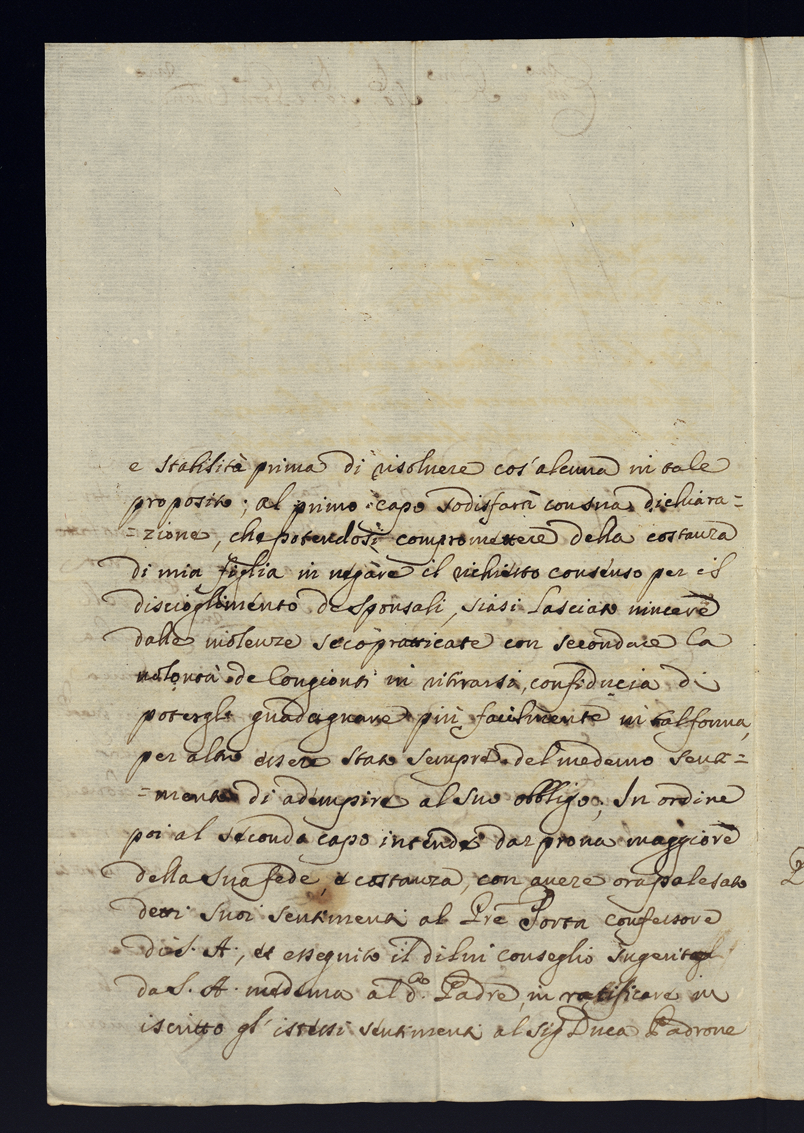 e stabilità prima di risoluere cos'alcuna in tale
proposito; al primo capo sodisfarsi con sua dichiara=
=zione, che potendosi compromettere della costanza
di mia figlia in negare il richiesto consenso per il
discioglimento de Sponsali, siasi lasciato uincere
dalle uiolenze seco pratticate con secondare la
uolontà de Congionti in ritirarsi, confiducia di
potergli guadagnare più facilmente in tal forma,
per altro essere stato sempre del medemo senti=
=mento di adempire al suo obbligo; In ordine
poi al secondo capo intende dar proua maggiore
della sua fede, e costanza, con auere ora palesato
detti suoi sentimenti al Pre Porta confessore
di S. A., et esseguito il di lui conseglio
da S. A. medema al d.º Padre, in ratificare in
iscritto gl'istessi sentimenti al Sig Duca Padrone